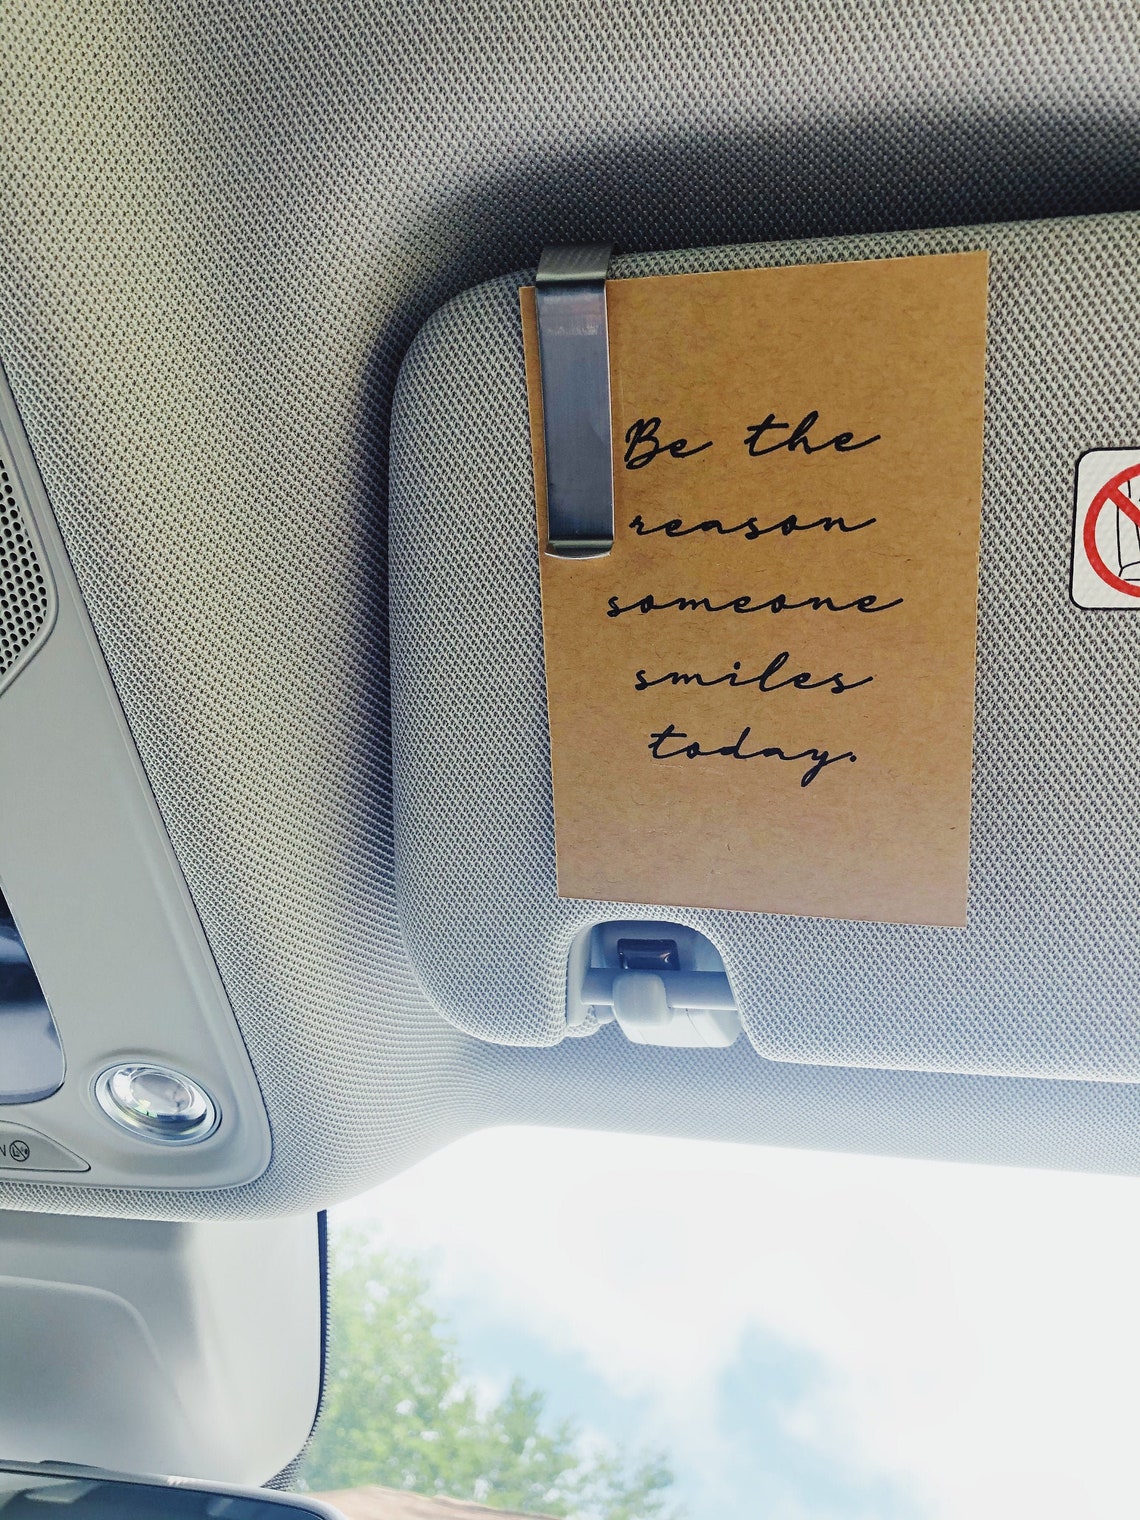 Be the
reason
someone
smiles
today.